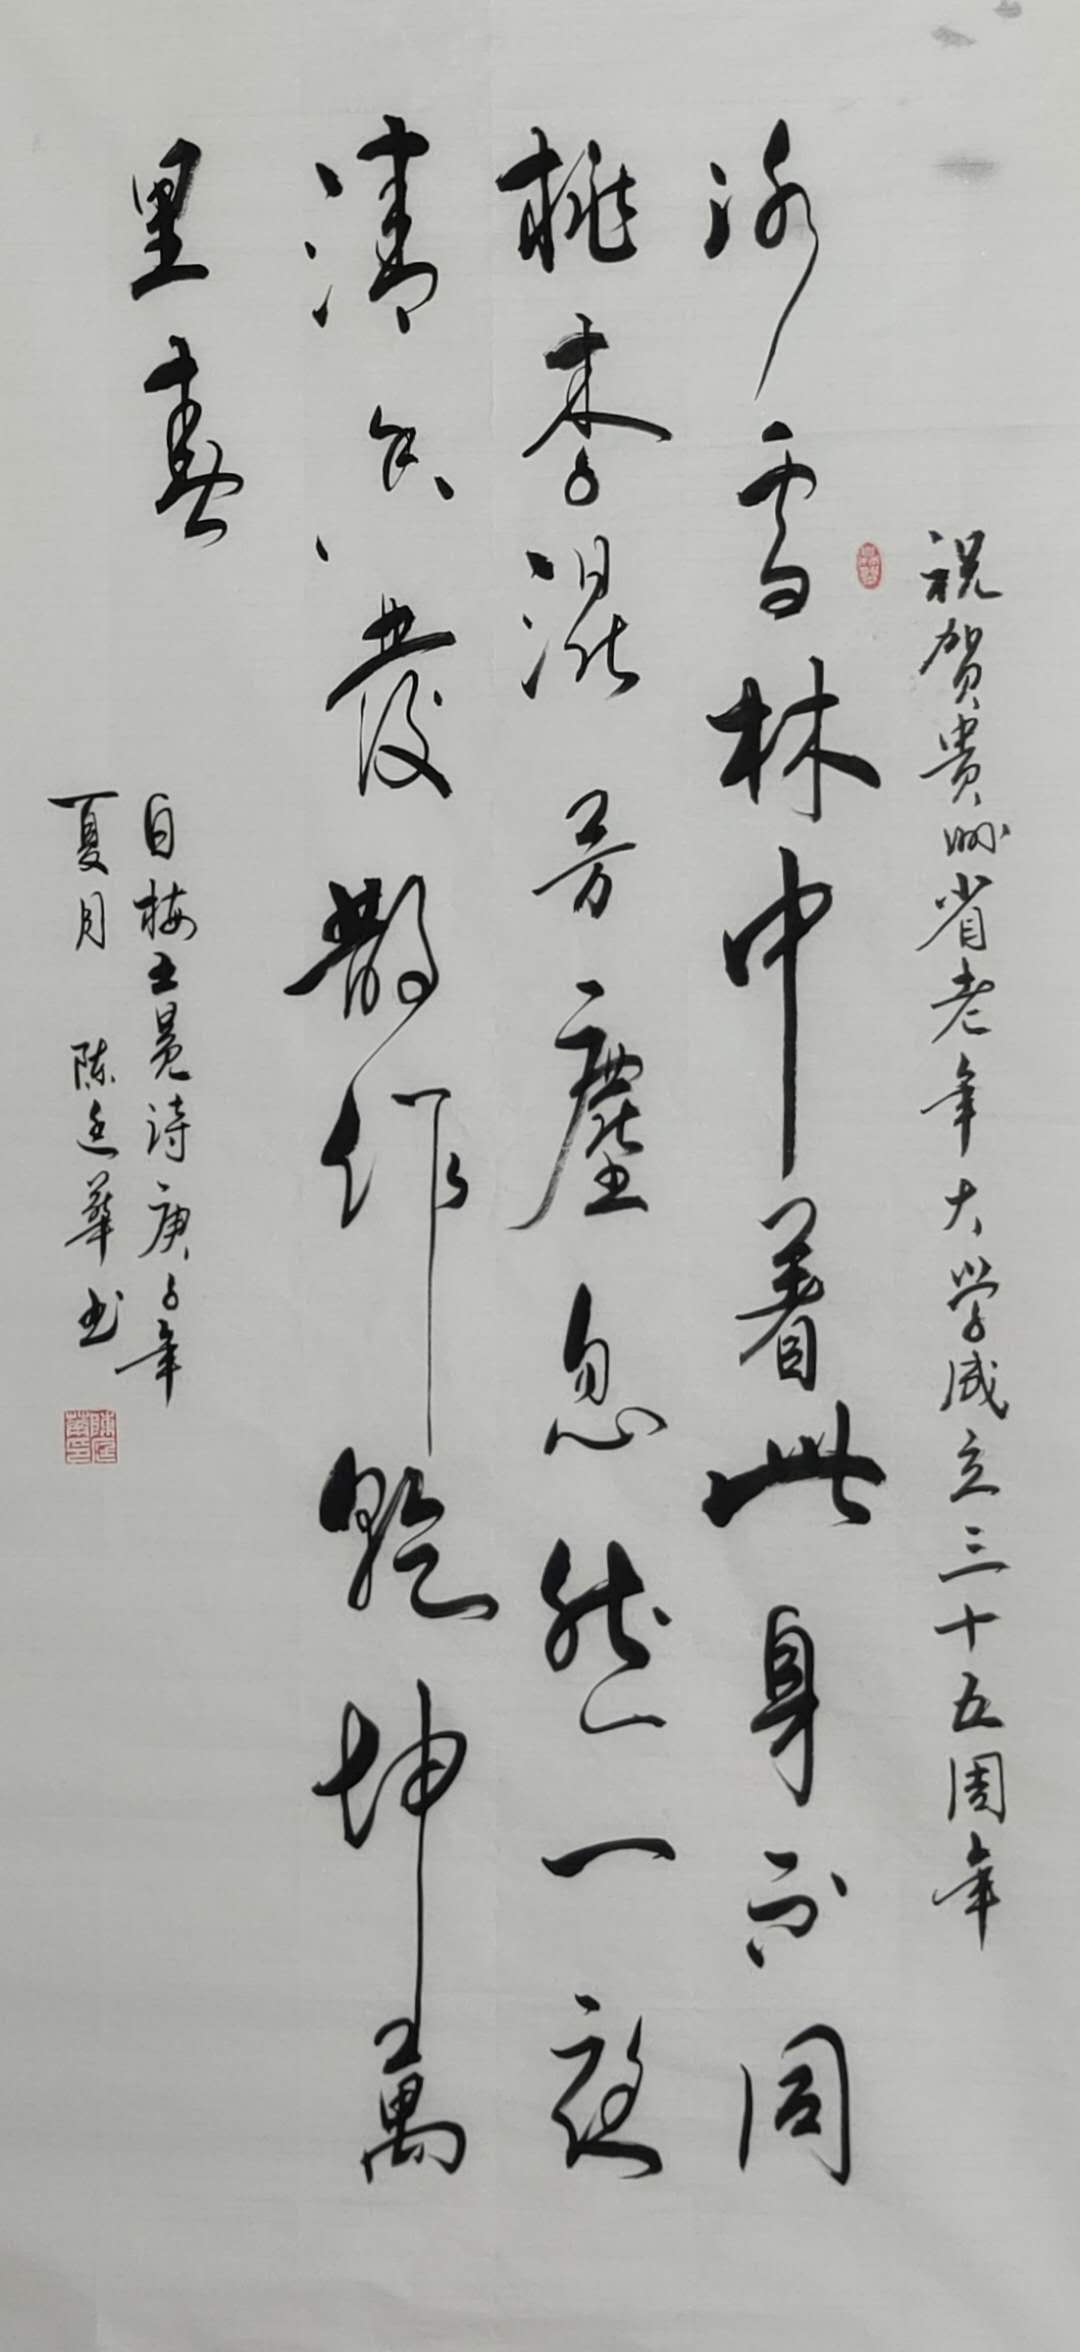 祝贺贵州省老年大学成立三十五周年
冰雪林中着此身不同
桃李混芳尘忽然一夜
清香发散作乾坤万
里春
白梅王冕诗庚子年
夏月 陈廷华书